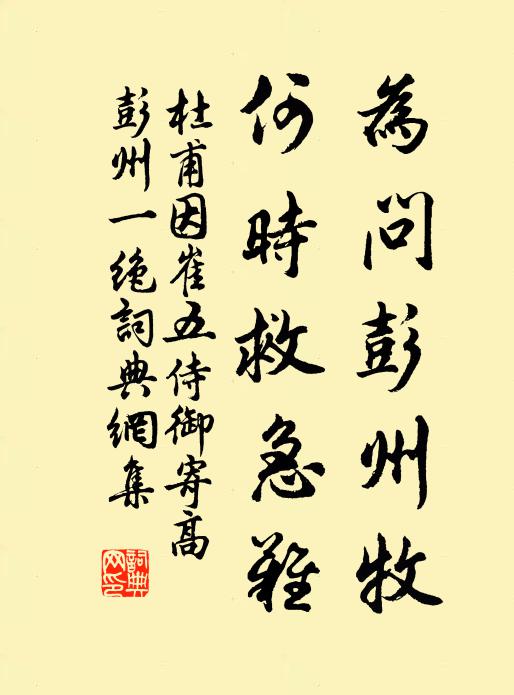 為問彭州牧
何時救急難
杜甫因崔五侍御寄高
彭州一絕詞典網集
詞典
网印